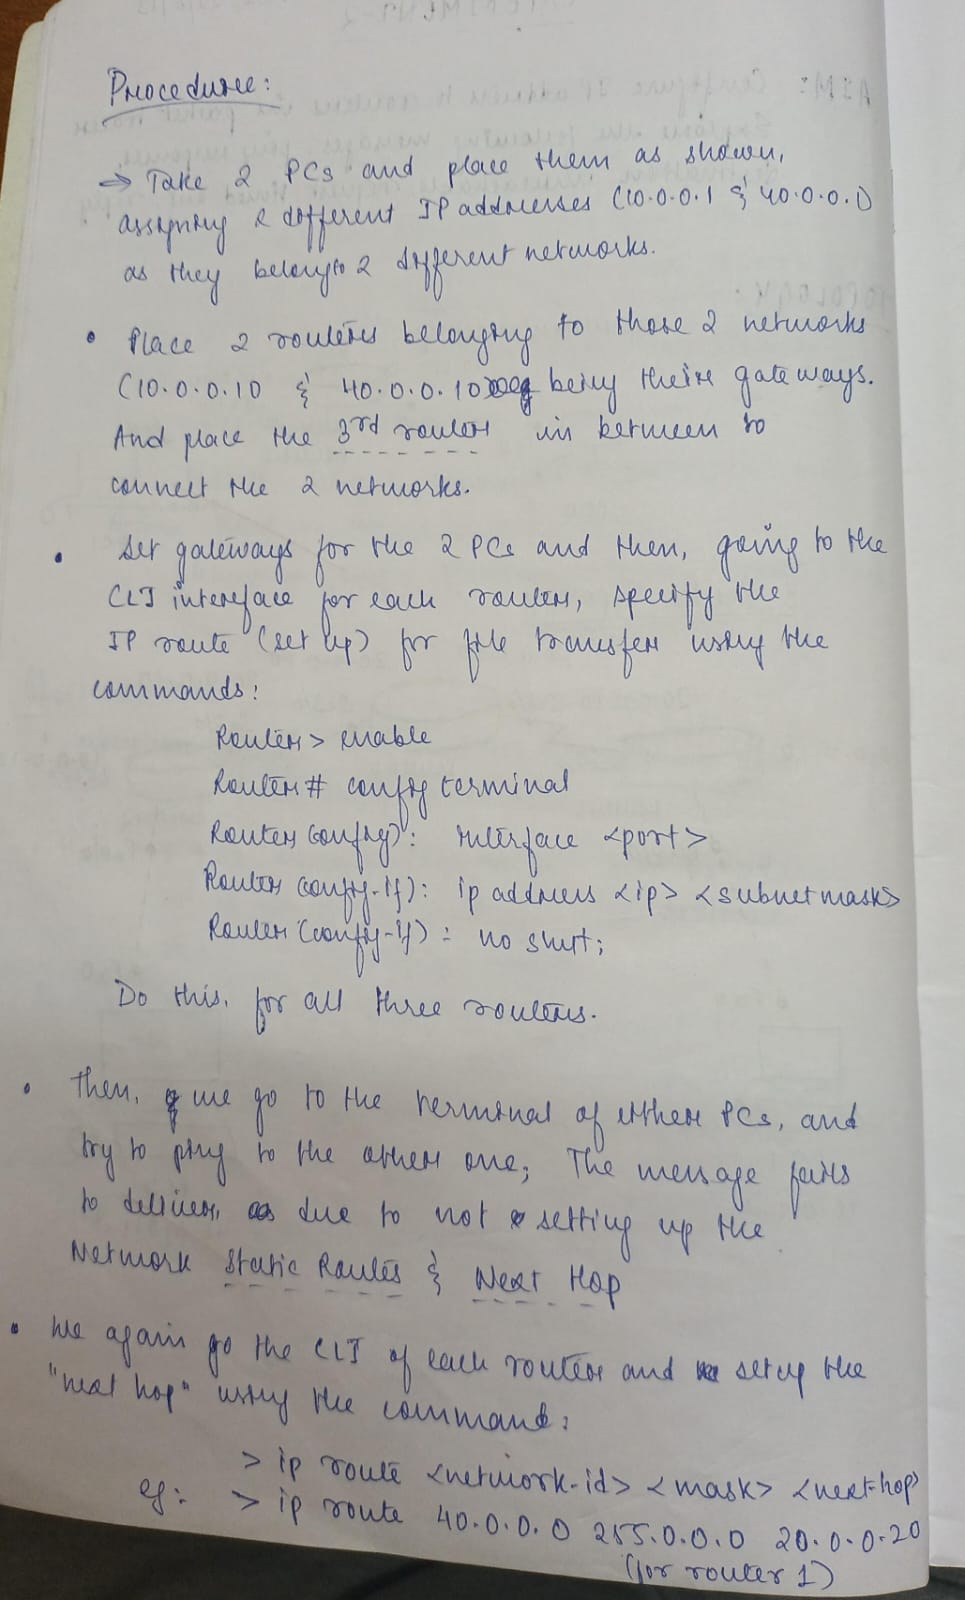 Procedure:
→ Take 2 PCs and place them as shown,
assigning 2 different IP addresses (10.0.0.1 & 40.0.0.1)
as they belong to 2 different networks.
• Place 2 routers belonging to those 2 networks
(10.0.0.10 & 40.0.0.10 being their gateways.
And place the 3rd router in between to
connect the 2 networks.
• Set gateways for the 2 PCs and then, going to the
CLI interface for each router, specify the
IP route (set up) for file transfer using the
commands:
Router> enable
Router# config terminal
Router(config): interface <port>
Router(config-if): ip address <ip> <subnet mask>
Router(config-if): no shut;
Do this, for all three routers.
• Then, we go to the terminal of either PCs, and
try to ping to the other one; The message fails
to deliver, due to not setting up the
Network Static Routes & Next Hop
• We again go the CLI of each router and setup the
"next hop" using the command:
> ip route <network-id> <mask> <next-hop>
eg: > ip route 40.0.0.0 255.0.0.0 20.0.0.20
(for router 1)